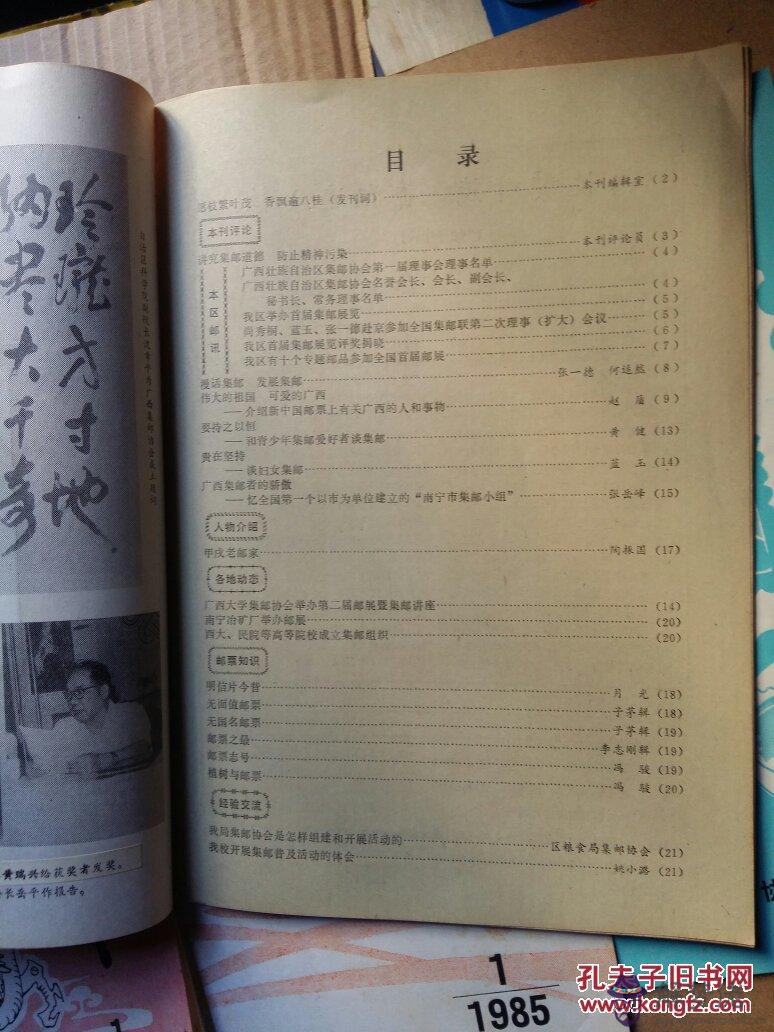 玲瓏方寸地
纳尽大千奇
黄瑞兴给获奖者发奖。
长岳平作报告。
目 录
愿枝繁叶茂 香飘遍八桂（发刊词）……本刊编辑室（2）
本刊评论
讲究集邮道德 防止精神污染……本刊评论员（3）
本区邮讯
广西壮族自治区集邮协会第一届理事会理事名单……（4）
广西壮族自治区集邮协会名誉会长、会长、副会长、
秘书长、常务理事名单……（4）
我区举办首届集邮展览……（5）
尚秀桐、蓝玉、张一德赴京参加全国集邮联第二次理事（扩大）会议……（5）
我区首届集邮展览评奖揭晓……（6）
我区有十个专题邮品参加全国首届邮展……（7）
漫话集邮 发展集邮……张一德 何廷然（8）
伟大的祖国 可爱的广西
——介绍新中国邮票上有关广西的人和事物……赵 盾（9）
要持之以恒
——和青少年集邮爱好者谈集邮……黄 健（13）
贵在坚持
——谈妇女集邮……蓝 玉（14）
广西集邮者的骄傲
——忆全国第一个以市为单位建立的“南宁市集邮小组”……张岳峰（15）
人物介绍
甲戌老邮家……陶振国（17）
各地动态
广西大学集邮协会举办第二届邮展暨集邮讲座……（14）
南宁冶矿厂举办邮展……（20）
西大、民院等高等院校成立集邮组织……（20）
邮票知识
明信片今昔……月 光（18）
无面值邮票……子茅辑（18）
无国名邮票……子茅辑（19）
邮票之最……李志刚辑（19）
邮票志号……冯 骏（19）
植树与邮票……冯 骏（20）
经验交流
我局集邮协会是怎样组建和开展活动的……区粮食局集邮协会（21）
我校开展集邮普及活动的体会……姚小潞（21）
1
1985
1
孔夫子旧书网
www.kongfz.com